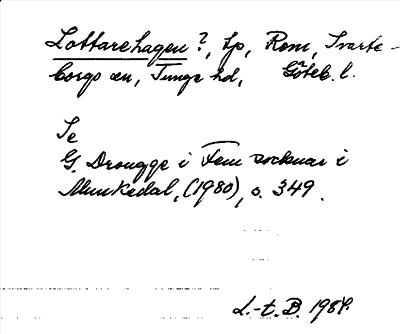 Lottarehagen?, tp, Rom, Svarte-
borgs sn, Tunge hd, Göteb. l.
Se
G. Drougge i Fem socknar i
Munkedal, (1980), s. 349.
L.-t. B. 1984.